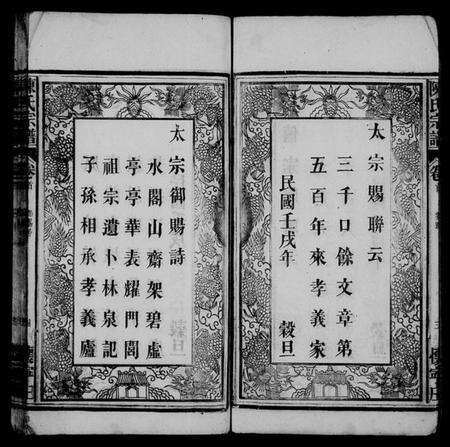 太宗賜聯云
三千口餘文章第
五百年來孝義家
民國壬戌年 穀旦
陳氏宗譜
太宗御賜詩
水閣山齋架碧虛
亭亭華表耀門閭
祖宗遺卜林泉記
子孫相承孝義廬
陳氏宗譜